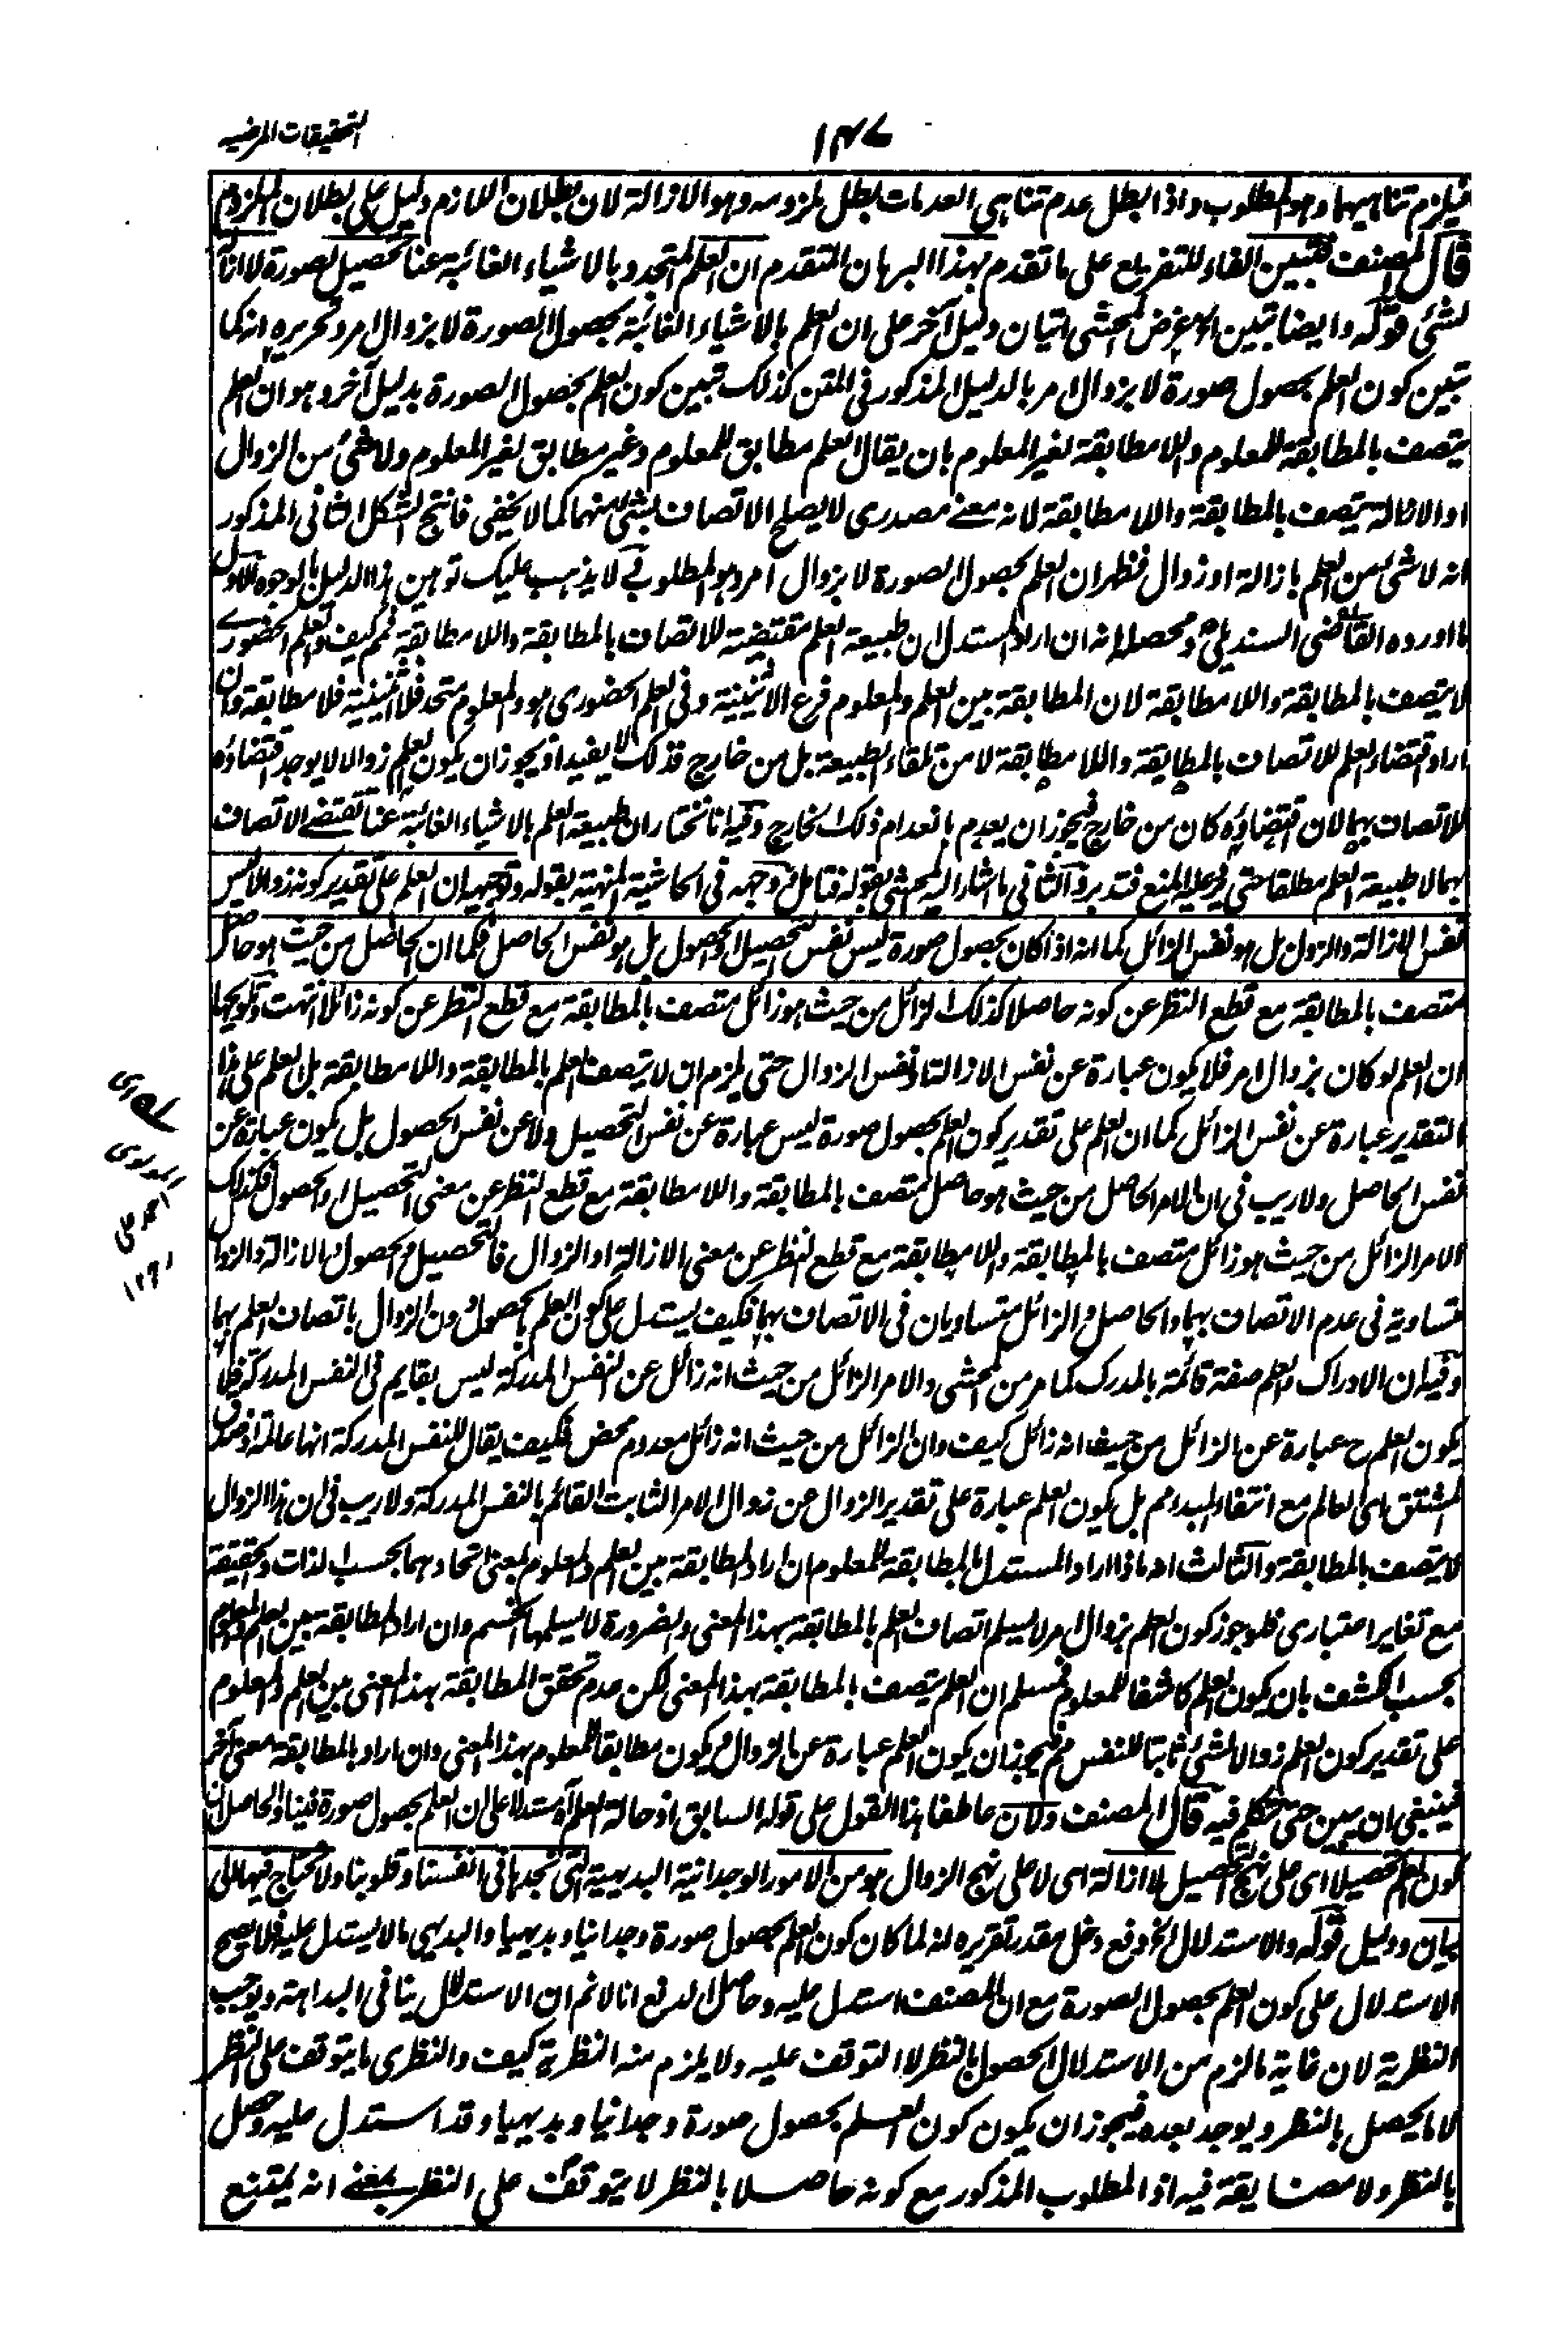 التحقيقات المرضيه
١٤٧
فيلزم تناهيهما وهو المطلوب واذا بطل عدم تناهى العدمات بطل ملزومه وهو الازالة لان بطلان اللازم دليل على بطلان الملزوم
قال المصنف فتبين الفاء للتفريع على ما تقدم بهذا البرهان المتقدم ان العلم المتجدد بالاشياء الغائبة عنا تحصيل لصورة لا ازالة
لشئ قوله وايضا تبين الخ غرض المحشى اتيان دليل آخر على ان العلم بالاشياء الغائبة بحصول الصورة لا بزوال امر وتحريره انه كما
تبين كون العلم بحصول صورة لا بزوال امر بالدليل المذكور فى المتن كذلك تبين كون العلم بحصول الصورة بدليل آخر وهو ان العلم
يتصف بالمطابقة للمعلوم واللا مطابقة لغير المعلوم بان يقال العلم مطابق للمعلوم وغير مطابق لغير المعلوم ولا شئ من الزوال
او الازالة يتصف بالمطابقة واللا مطابقة لانه معنے مصدرى لا يصلح الاتصاف بشئ منهما كما لا يخفى فانتج الشكل الثانى المذكور
انه لا شئ من العلم بازالة او زوال فظهر ان العلم بحصول الصورة لا بزوال امر وهو المطلوب لا يذهب عليك توهين هذا الدليل بالوجوه الاول
ما اورده القاضى السنديلى ومحصله انه ان اراد المستدل ان طبيعة العلم مقتضية للاتصاف بالمطابقة واللا مطابقة فمم كيف والعلم الحضورے
لا يتصف بالمطابقة واللا مطابقة لان المطابقة بين العلم والمعلوم فرع الاثنينية وفى العلم الحضورى هو والمعلوم متحد فلا اثنينية فلا مطابقة وان
اراد اقتضاء العلم للاتصاف بالمطابقة واللا مطابقة لا من تلقاء الطبيعة بل من خارج فذلك لا يفيد اذ يجوز ان يكون العلم زوالا لا يوجد اقتضاؤه
للاتصاف بهما لان اقتضاؤه كان من خارج فيجوز ان يعدم بانعدام ذلك الخارج وفيه انا نختار ان طبيعة العلم بالاشياء الغائبة عنا تقتضے الاتصاف
بهما لا طبيعة العلم مطلقا حتى يرد عليه المنع فتدبر والثانى ما اشار اليه المحشى بقوله فتامل ووجهه فى الحاشية المنهية بقوله وتوجيهه ان العلم على تقدير كونه زوالا ليس
نفس الازالة والزوال بل هو نفس الزائل كما انه اذا كان بحصول صورة ليس نفس التحصيل او الحصول بل هو نفس الحاصل فكما ان الحاصل من حيث هو حاصل
متصف بالمطابقة مع قطع النظر عن كونه حاصلا كذلك الزائل من حيث هو زائل متصف بالمطابقة مع قطع النظر عن كونه زائلا انتهت
ان العلم لو كان بزوال امر فلا يكون عبارة عن نفس الازالة او نفس الزوال حتى يلزم ان لا يتصف العلم بالمطابقة واللا مطابقة بل العلم على هذا
التقدير عبارة عن نفس الزائل كما ان العلم على تقدير كون العلم بحصول صورة ليس عبارة عن نفس التحصيل ولا عن نفس الحصول بل يكون عبارة عن
نفس الحاصل ولا ريب فى ان الامر الحاصل من حيث هو حاصل متصف بالمطابقة واللا مطابقة مع قطع النظر عن معنى التحصيل او الحصول فكذلك
الامر الزائل من حيث هو زائل متصف بالمطابقة واللا مطابقة مع قطع النظر عن معنى الازالة او الزوال فالتحصيل والحصول والازالة والزوال
متساوية فى عدم الاتصاف بهما والحاصل والزائل متساويان فى الاتصاف بهما فكيف يستدل على كون العلم بالحصول دون الزوال باتصاف العلم بهما
وفيه ان الادراك والعلم صفة قائمة بالمدرك كما مر من المحشى والامر الزائل من حيث انه زائل عن النفس المدركة ليس بقايم فى النفس المدركة فلا
يكون العلم ح عبارة عن الزائل من حيث انه زائل كيف وان الزائل من حيث انه زائل معدوم محض فكيف يقال للنفس المدركة انها عالمة اذ صدق
المشتق اى العالم مع انتفاء المبدا مم بل يكون العلم عبارة على تقدير الزوال عن زوال الامر الثابت القائم بالنفس المدركة ولا ريب فى ان هذا الزوال
لا يتصف بالمطابقة والثالث انه ماذا اراد المستدل بالمطابقة للمعلوم ان اراد المطابقة بين العلم والمعلوم بمعنى اتحادهما بحسب الذات والحقيقة
مع تغاير اعتبارى فلو جوز كون العلم بزوال امر لا يسلم اتصاف العلم بالمطابقة بهذا المعنى والضرورة لا يسلمها الخصم وان اراد المطابقة بين العلم والمعلوم
بحسب الكشف بان يكون العلم كاشفا للمعلوم فمسلم ان العلم يتصف بالمطابقة بهذا المعنى لكن عدم تحقق المطابقة بهذا المعنى بين العلم والمعلوم
على تقدير كون العلم زوالا لشئ ثابتا للنفس مم فيجوز ان يكون العلم عبارة عن الزوال ويكون مطابقا للمعلوم بهذا المعنى وان اراد بالمطابقة معنى آخر
فينبغى ان يبين حتى نتكلم فيه قال المصنف ولان عاطفا هذا القول على قوله السابق اذ حالة العلم آه مستدلا على ان العلم بحصول صورة فينا والحاصل ان
كون العلم تحصيلا اى على نهج التحصيل لا ازالة اى لا على نهج الزوال هو من الامور الوجدانية البديهية التى نجدها فى انفسنا وقلوبنا ولا نحتاج فيها الى
بيان ودليل قوله والاستدلال الخ دفع دخل مقدر تقريره انه لما كان كون العلم بحصول صورة وجدانيا وبديهيا والبديهى ما لا يستدل عليه فلا يصح
الاستدلال على كون العلم بحصول الصورة مع ان المصنف استدل عليه وحاصل الدفع انا لا نم ان الاستدلال ينافى البداهة ويوجب
النظرية لان غاية ما لزم من الاستدلال الحصول بالنظر لا التوقف عليه ولا يلزم منه النظرية كيف والنظرى ما يتوقف على النظر
لا ما يحصل بالنظر ويوجد بعده فيجوز ان يكون كون العلم بحصول صورة وجدانيا وبديهيا وقد استدل عليه وحصل
بالنظر ولا مضايقة فيه اذ المطلوب المذكور مع كونه حاصلا بالنظر لا يتوقف على النظر بمعنے انه يمتنع